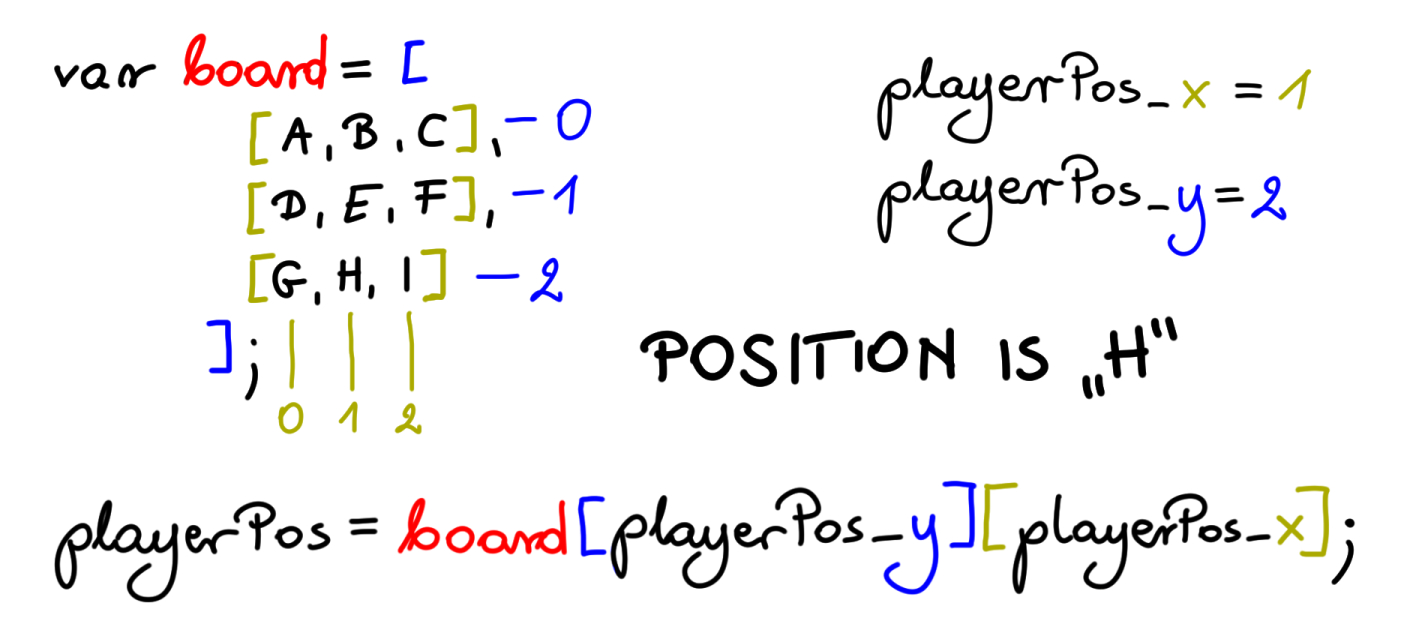 var board = [
[A, B, C], - 0
[D, E, F], - 1
[G, H, I] - 2
];
0 1 2
playerPos_x = 1
playerPos_y = 2
POSITION IS „H"
playerPos = board[playerPos_y][playerPos_x];